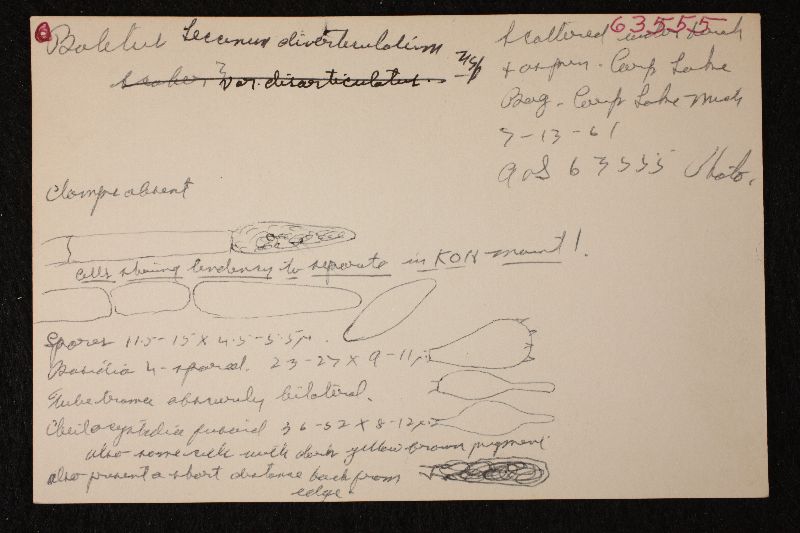 63555
Boletus Leccinum
scaber var. disarticulatus. nsp
Scattered under birch
+ aspen - Carp Lake
Bog - Carp Lake Mich
7-13-61
AHS 63555 Photo.
Clamps absent
cells showing tendency to separate in KOH mount!
Spores 11.5-15 x 4.5-5.5µ.
Basidia 4-spored. 23-27 x 9-11µ
Tube trama obscurely bilateral.
Cheilocystidia fusoid 36-52 x 8-12µ
also some cells with dark yellow brown pigment
also present a short distance back from
edge.